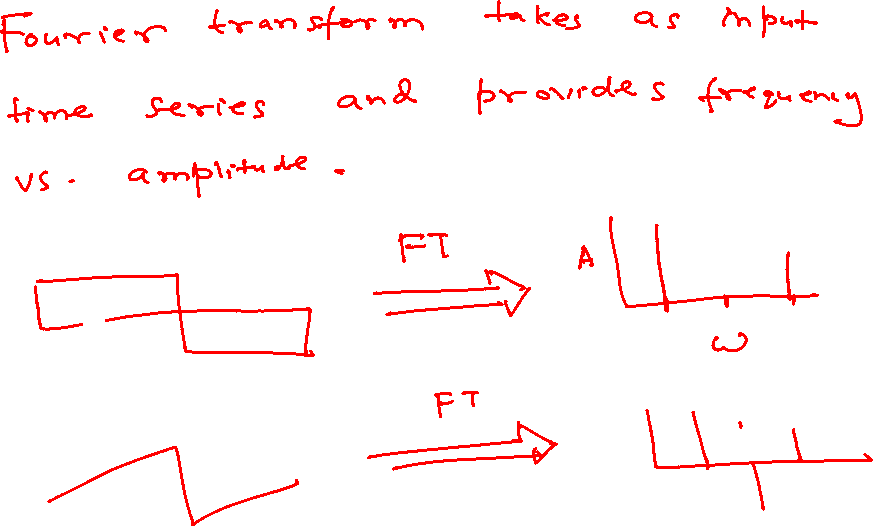 Fourier transform takes as input
time series and provides frequency
vs. amplitude.
FT
A
ω
FT